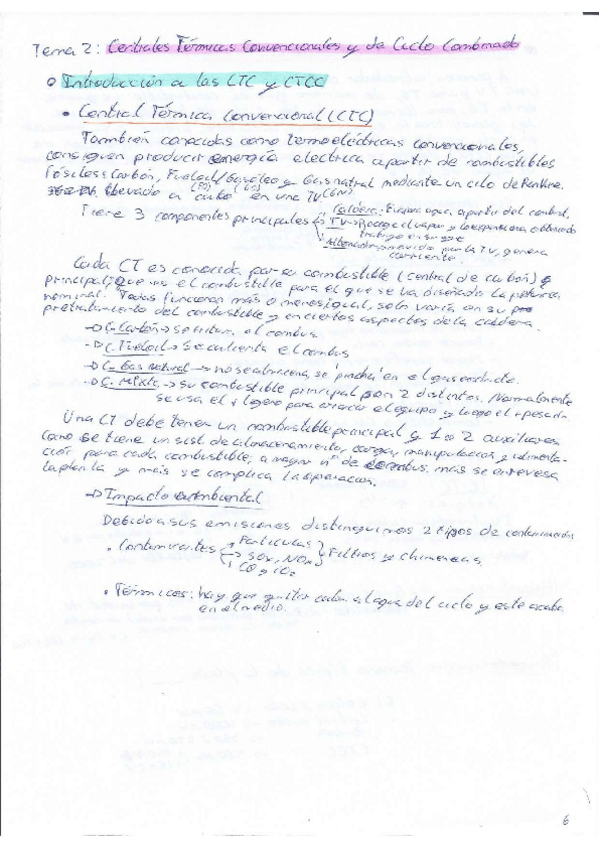 Tema 2: Centrales Térmicas Convencionales y de Ciclo Combinado
o Introducción a las CTC y CTCC
• Central Térmica Convencional (CTC)
También conocidas como termoeléctricas convencionales,
consiguen producir energía electrica a partir de combustibles
fósiles: Carbón, Fueloil/Gasóleo y Gas natral mediante un ciclo de Rankine.
llevado a cabo en una TV (GN)
Tiene 3 componentes principales
Caldera: agua, a partir del combust.
TV → Recoge el vapor y lo expansiona obteniendo
trabajo en su eje
Alternador: movido por la TV, genera
corriente.
Cada CT es conocida por su combustible (central de carbón)
principal, que es el combustible para el que se va diseñado la potencia
nominal. Todas funcionan más o menos igual, solo varía en su
pretratamiento del combustible y en ciertos aspectos de la caldera.
→ C. Carbón → se tritura el combus.
→ C. Fueloil → Se calienta el combus
→ C. Gas Natural → no se almacena, se 'pincha' en el gaseoducto.
→ C. Mixta → su combustible principal son 2 distintos. Normalmente
se usa el + ligero para arrancar el equipo y luego el + pesado.
Una CT debe tener un combustible principal y 1 o 2 auxiliares
Como se tiene un sist. de almacenamiento, cargar, manipulación y alimenta-
ción, para cada combustible, a mayor nº de combus. más se
la planta y más se complica la operación.
→ Impacto Ambiental
Debido a sus emisiones distinguimos 2 tipos de contaminación
• Contaminantes → Partículas
→ SOx, NOx
→ CO y CO2
Filtros y chimeneas.
• Térmicos: hay que quitar calor al agua del ciclo y este acaba
en el medio.
6